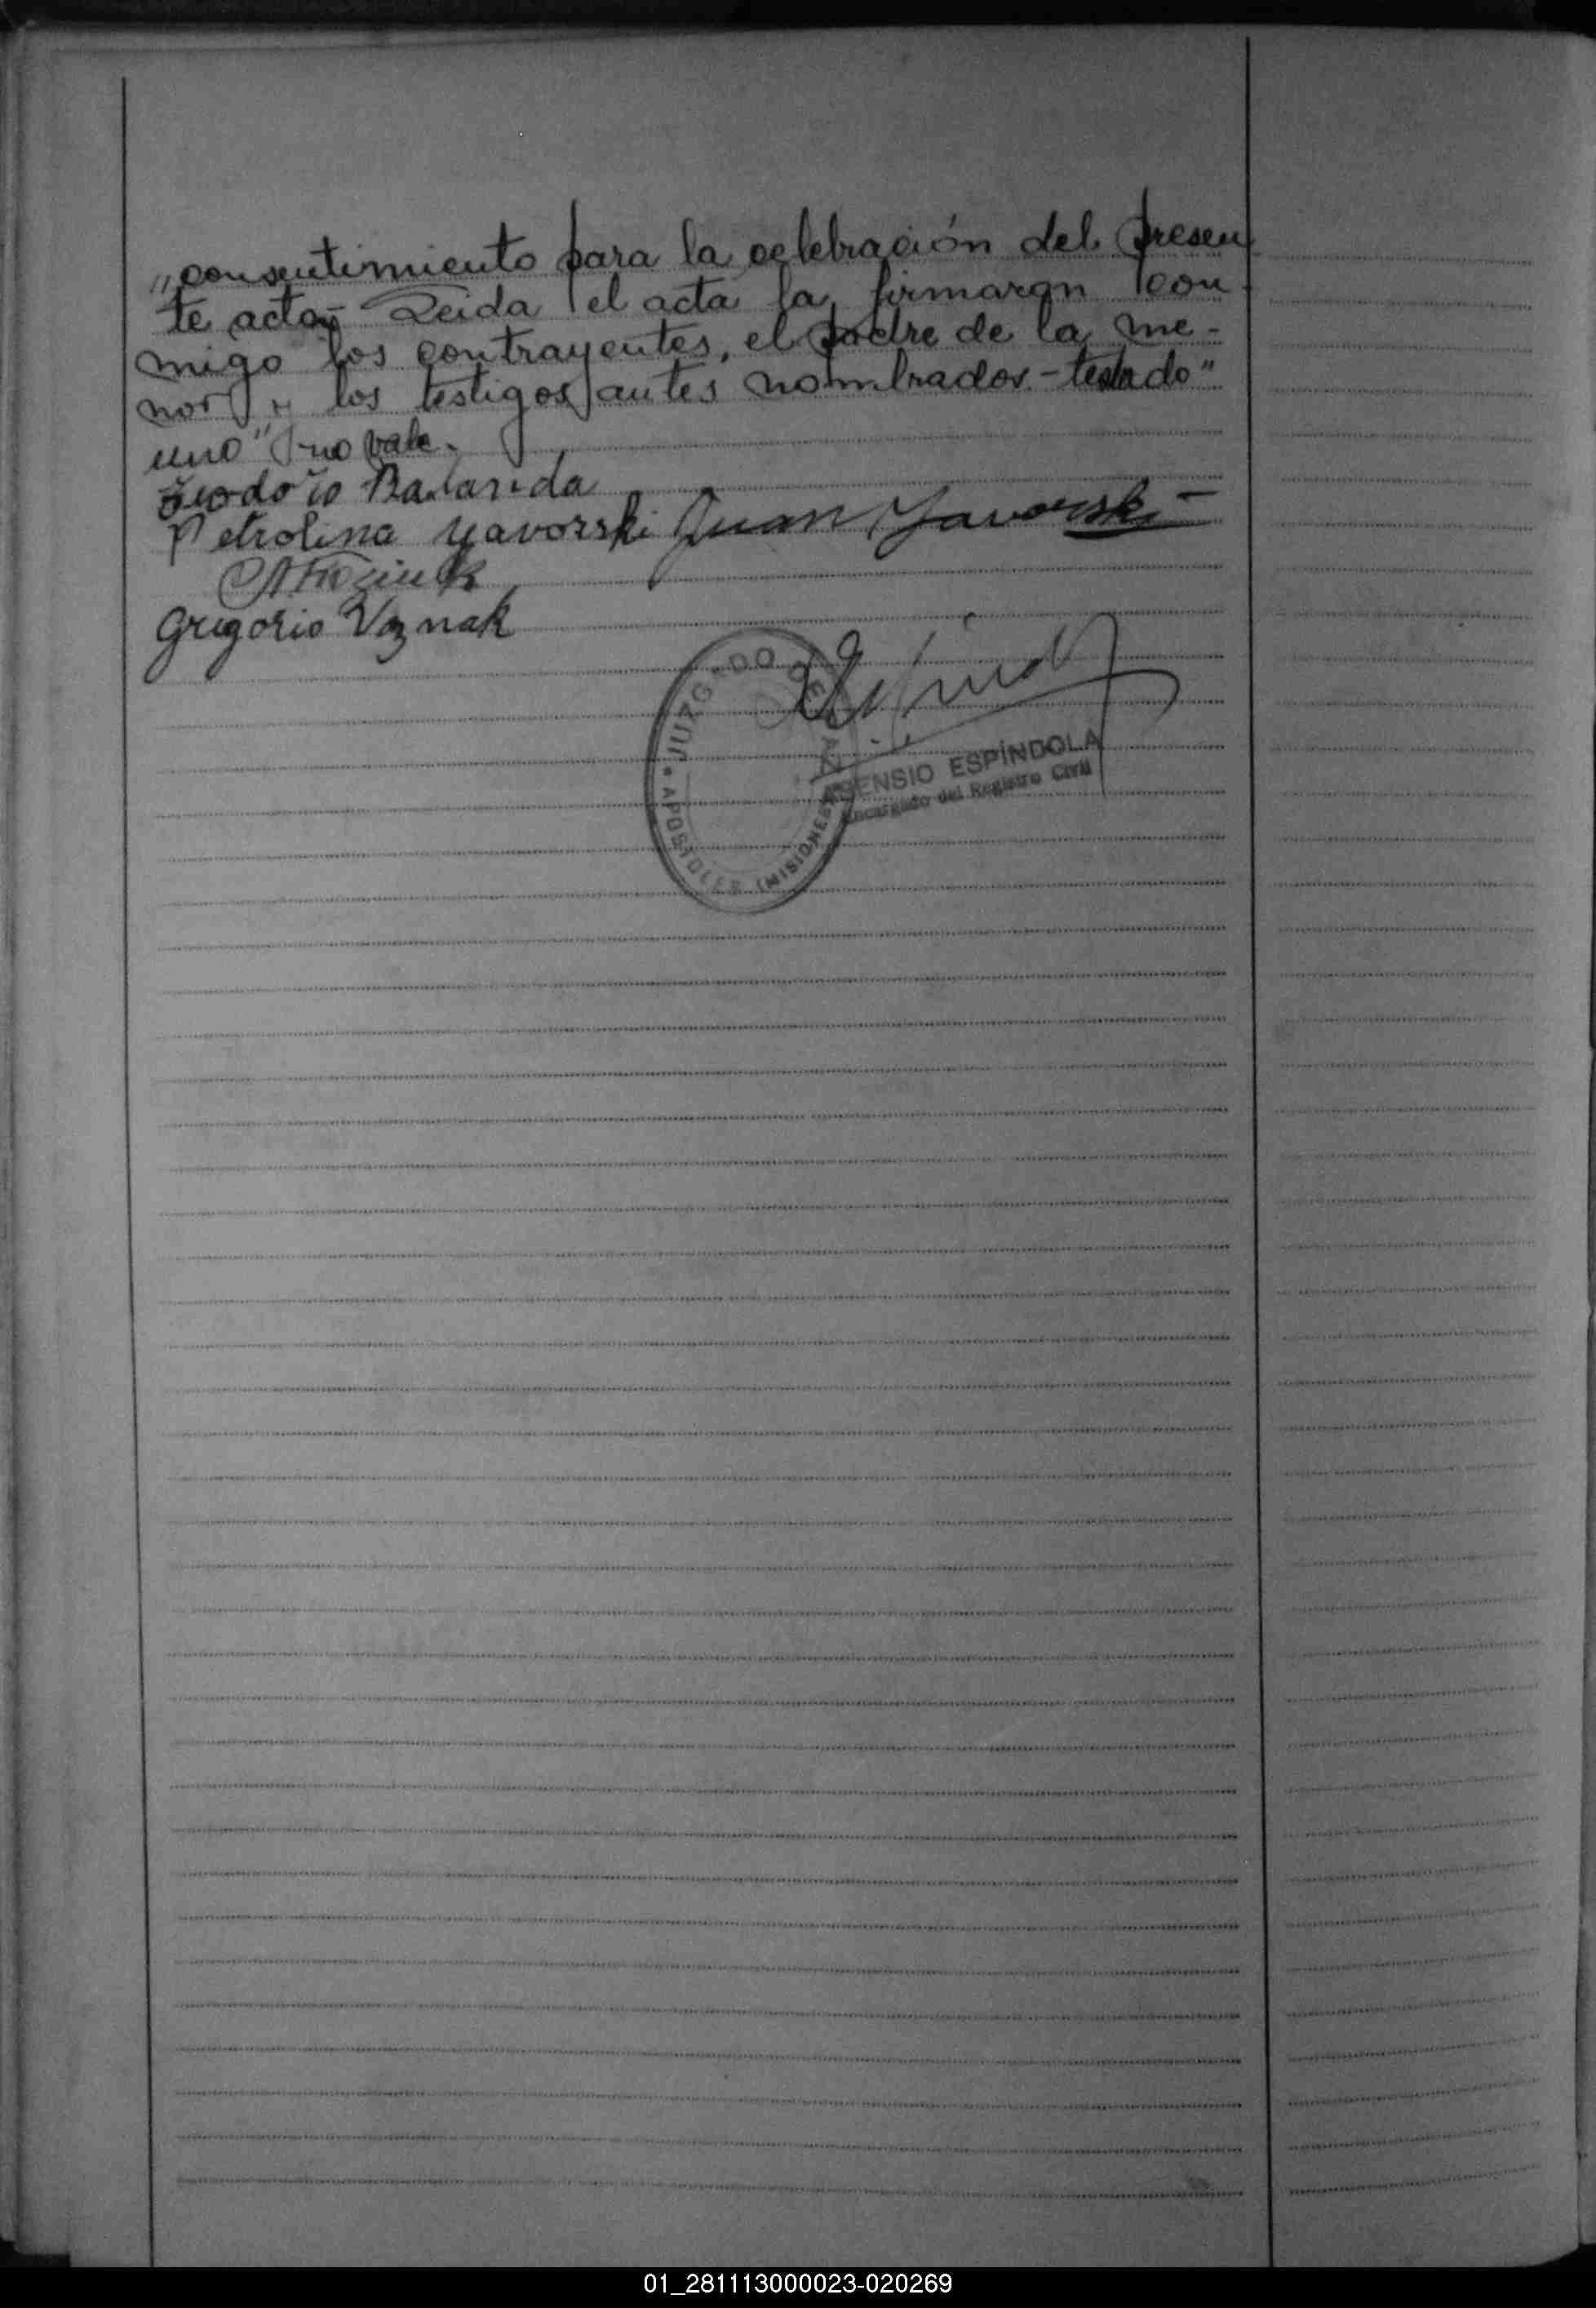 „consentimiento para la celebración del presen
te acto,- Leida el acta la firmaron con
migo los contrayentes, el padre de la me-
nor y los testigos antes nombrados - testado"
uno" no vale.
Petrolina Yavorski Juan Yavorski
Gregorio Woznak
JUZGADO DE PAZ
APOSTOLES (MISIONES)
ASENSIO ESPÍNDOLA
Encargado del Registro Civil
01_281113000023-020269